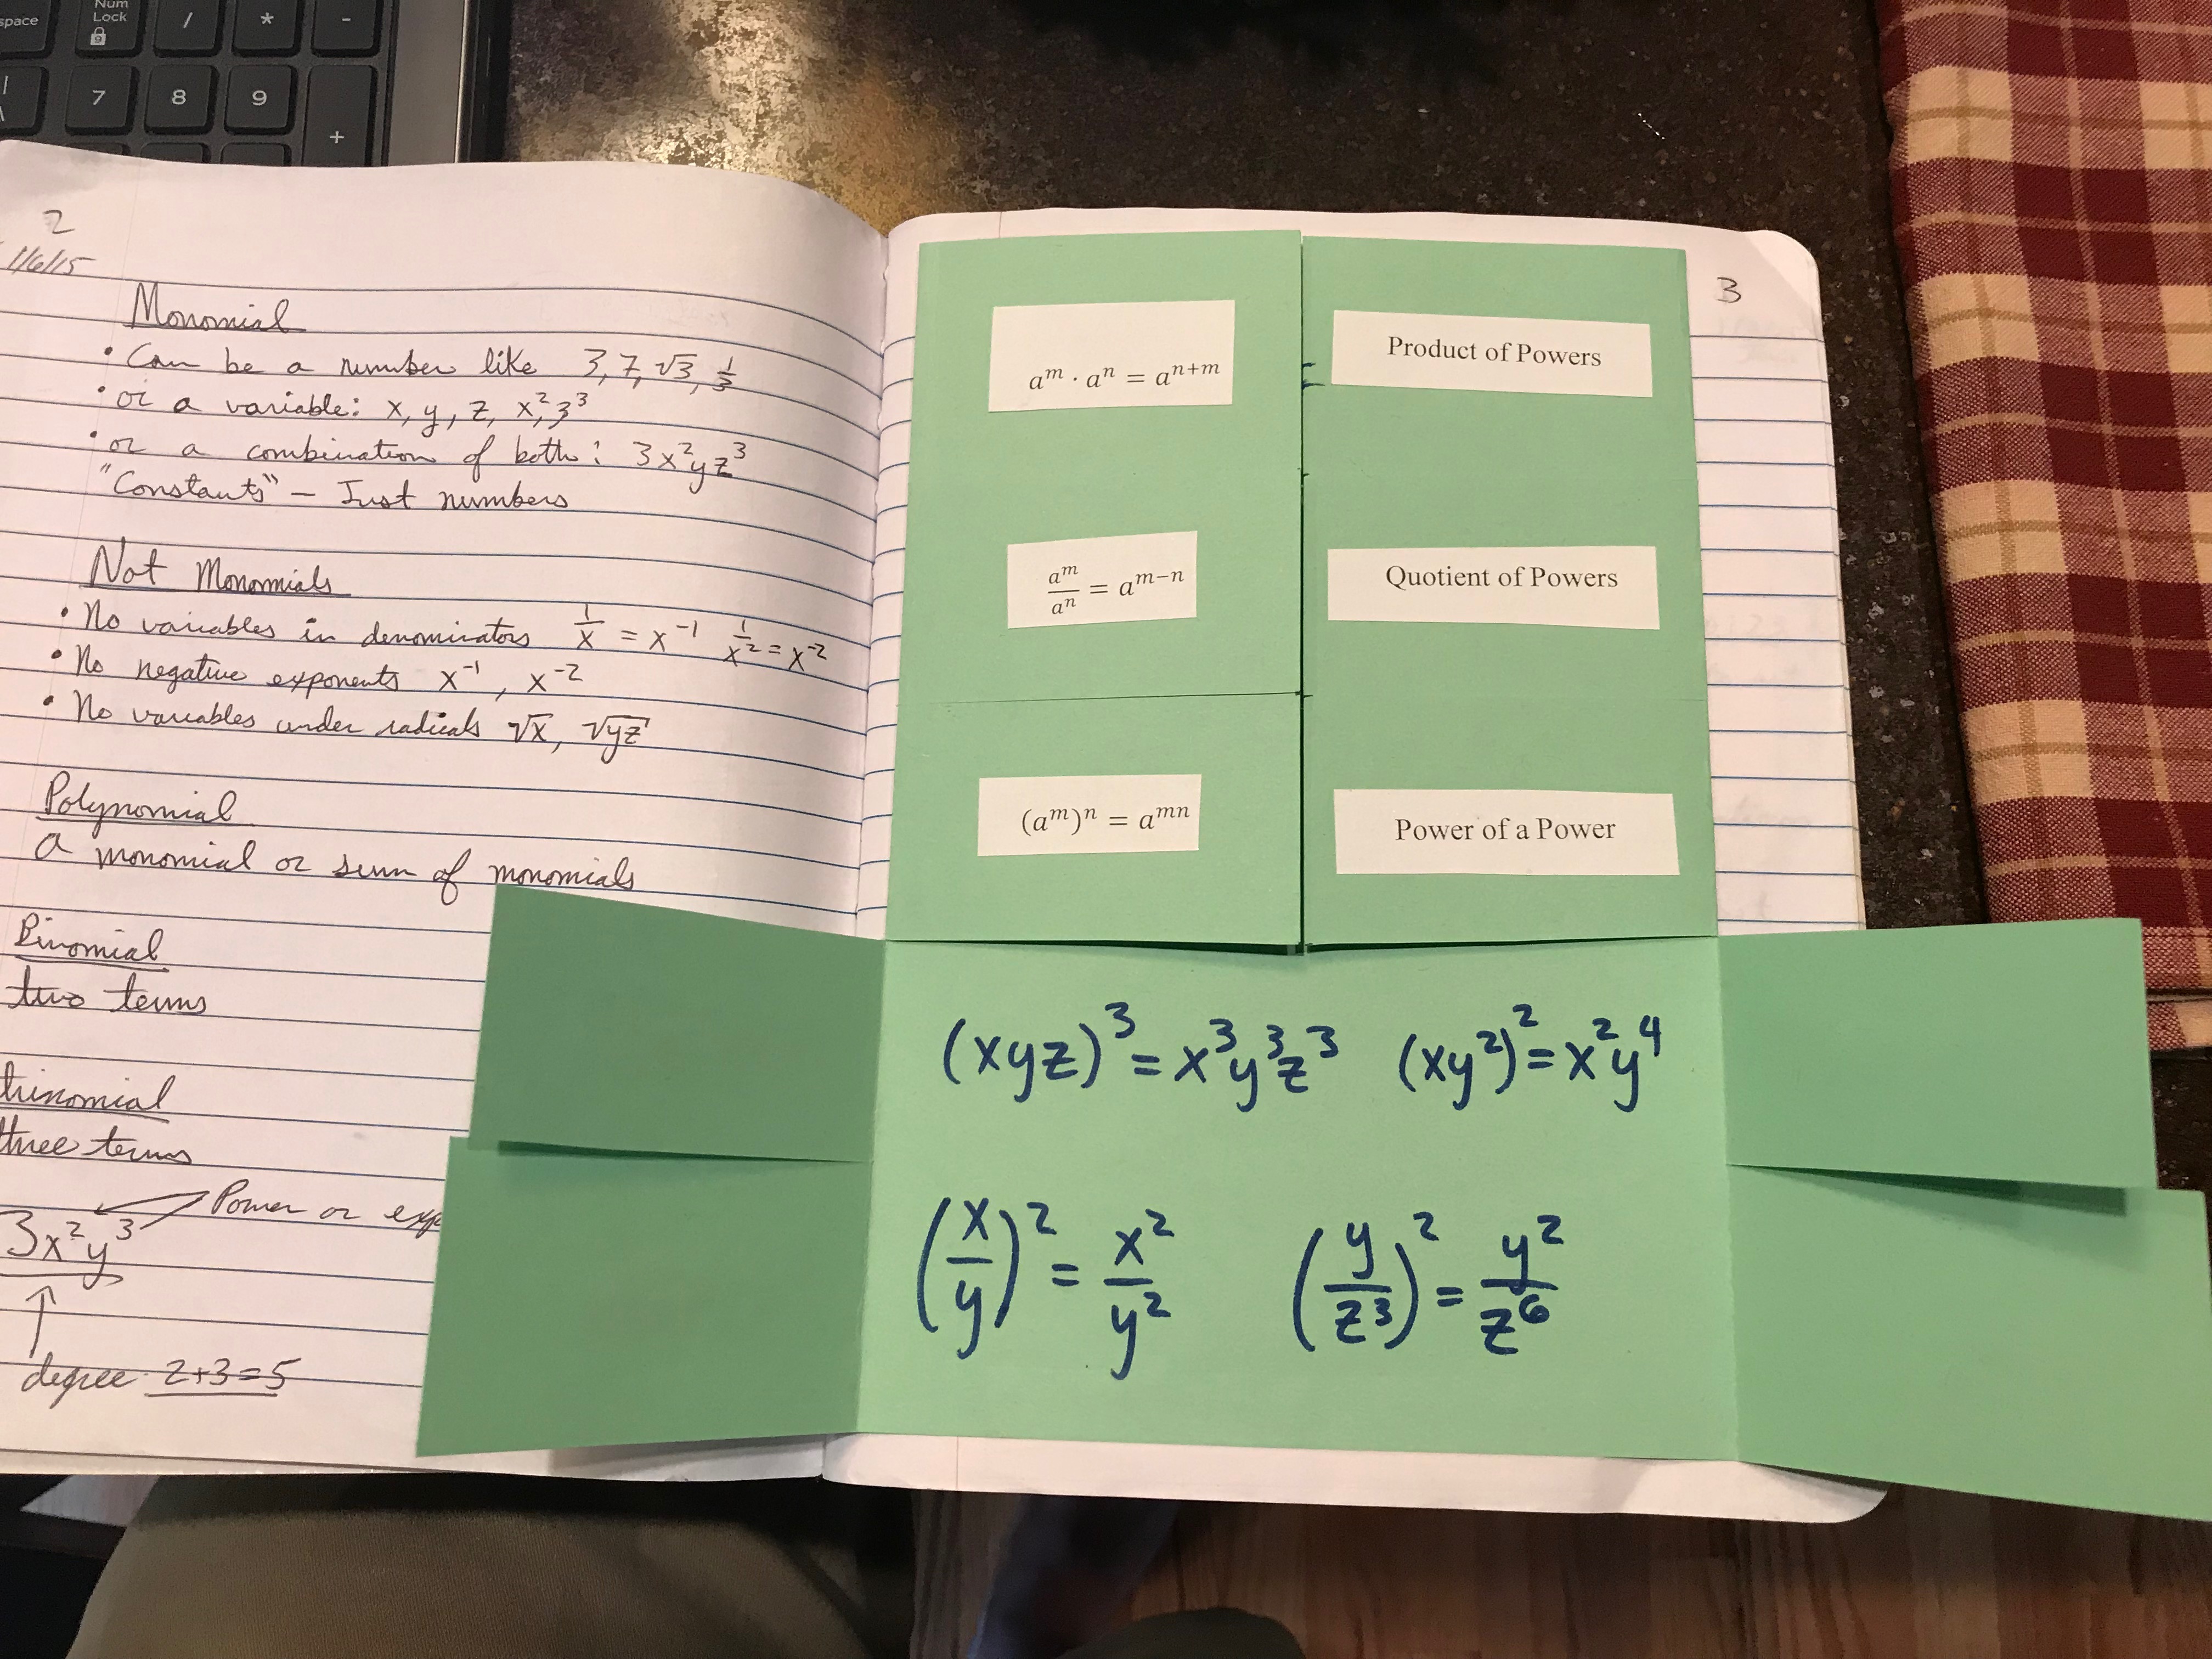 2
Monomial
• Can be a number like 3, 7, √3, 1/3
• or a variable: x, y, z, x², z³
• or a combination of both: 3x²yz³
"Constants" – Just numbers
Not Monomials
• No variables in denominators 1/x = x⁻¹ 1/x² = x⁻²
• No negative exponents x⁻¹, x⁻²
• No variables under radicals √x, √yz
Polynomial
a monomial or sum of monomials
Binomial
two terms
trinomial
three terms
3x²y³ Power or exp
degree 2+3=5
3
aᵐ · aⁿ = aⁿ⁺ᵐ
Product of Powers
aᵐ/aⁿ = aᵐ⁻ⁿ
Quotient of Powers
(aᵐ)ⁿ = aᵐⁿ
Power of a Power
(xyz)³ = x³y³z³ (xy²)² = x²y⁴
(x/y)² = x²/y² (y/z³)² = y²/z⁶
space
Num Lock
/
*
-
7
8
9
+